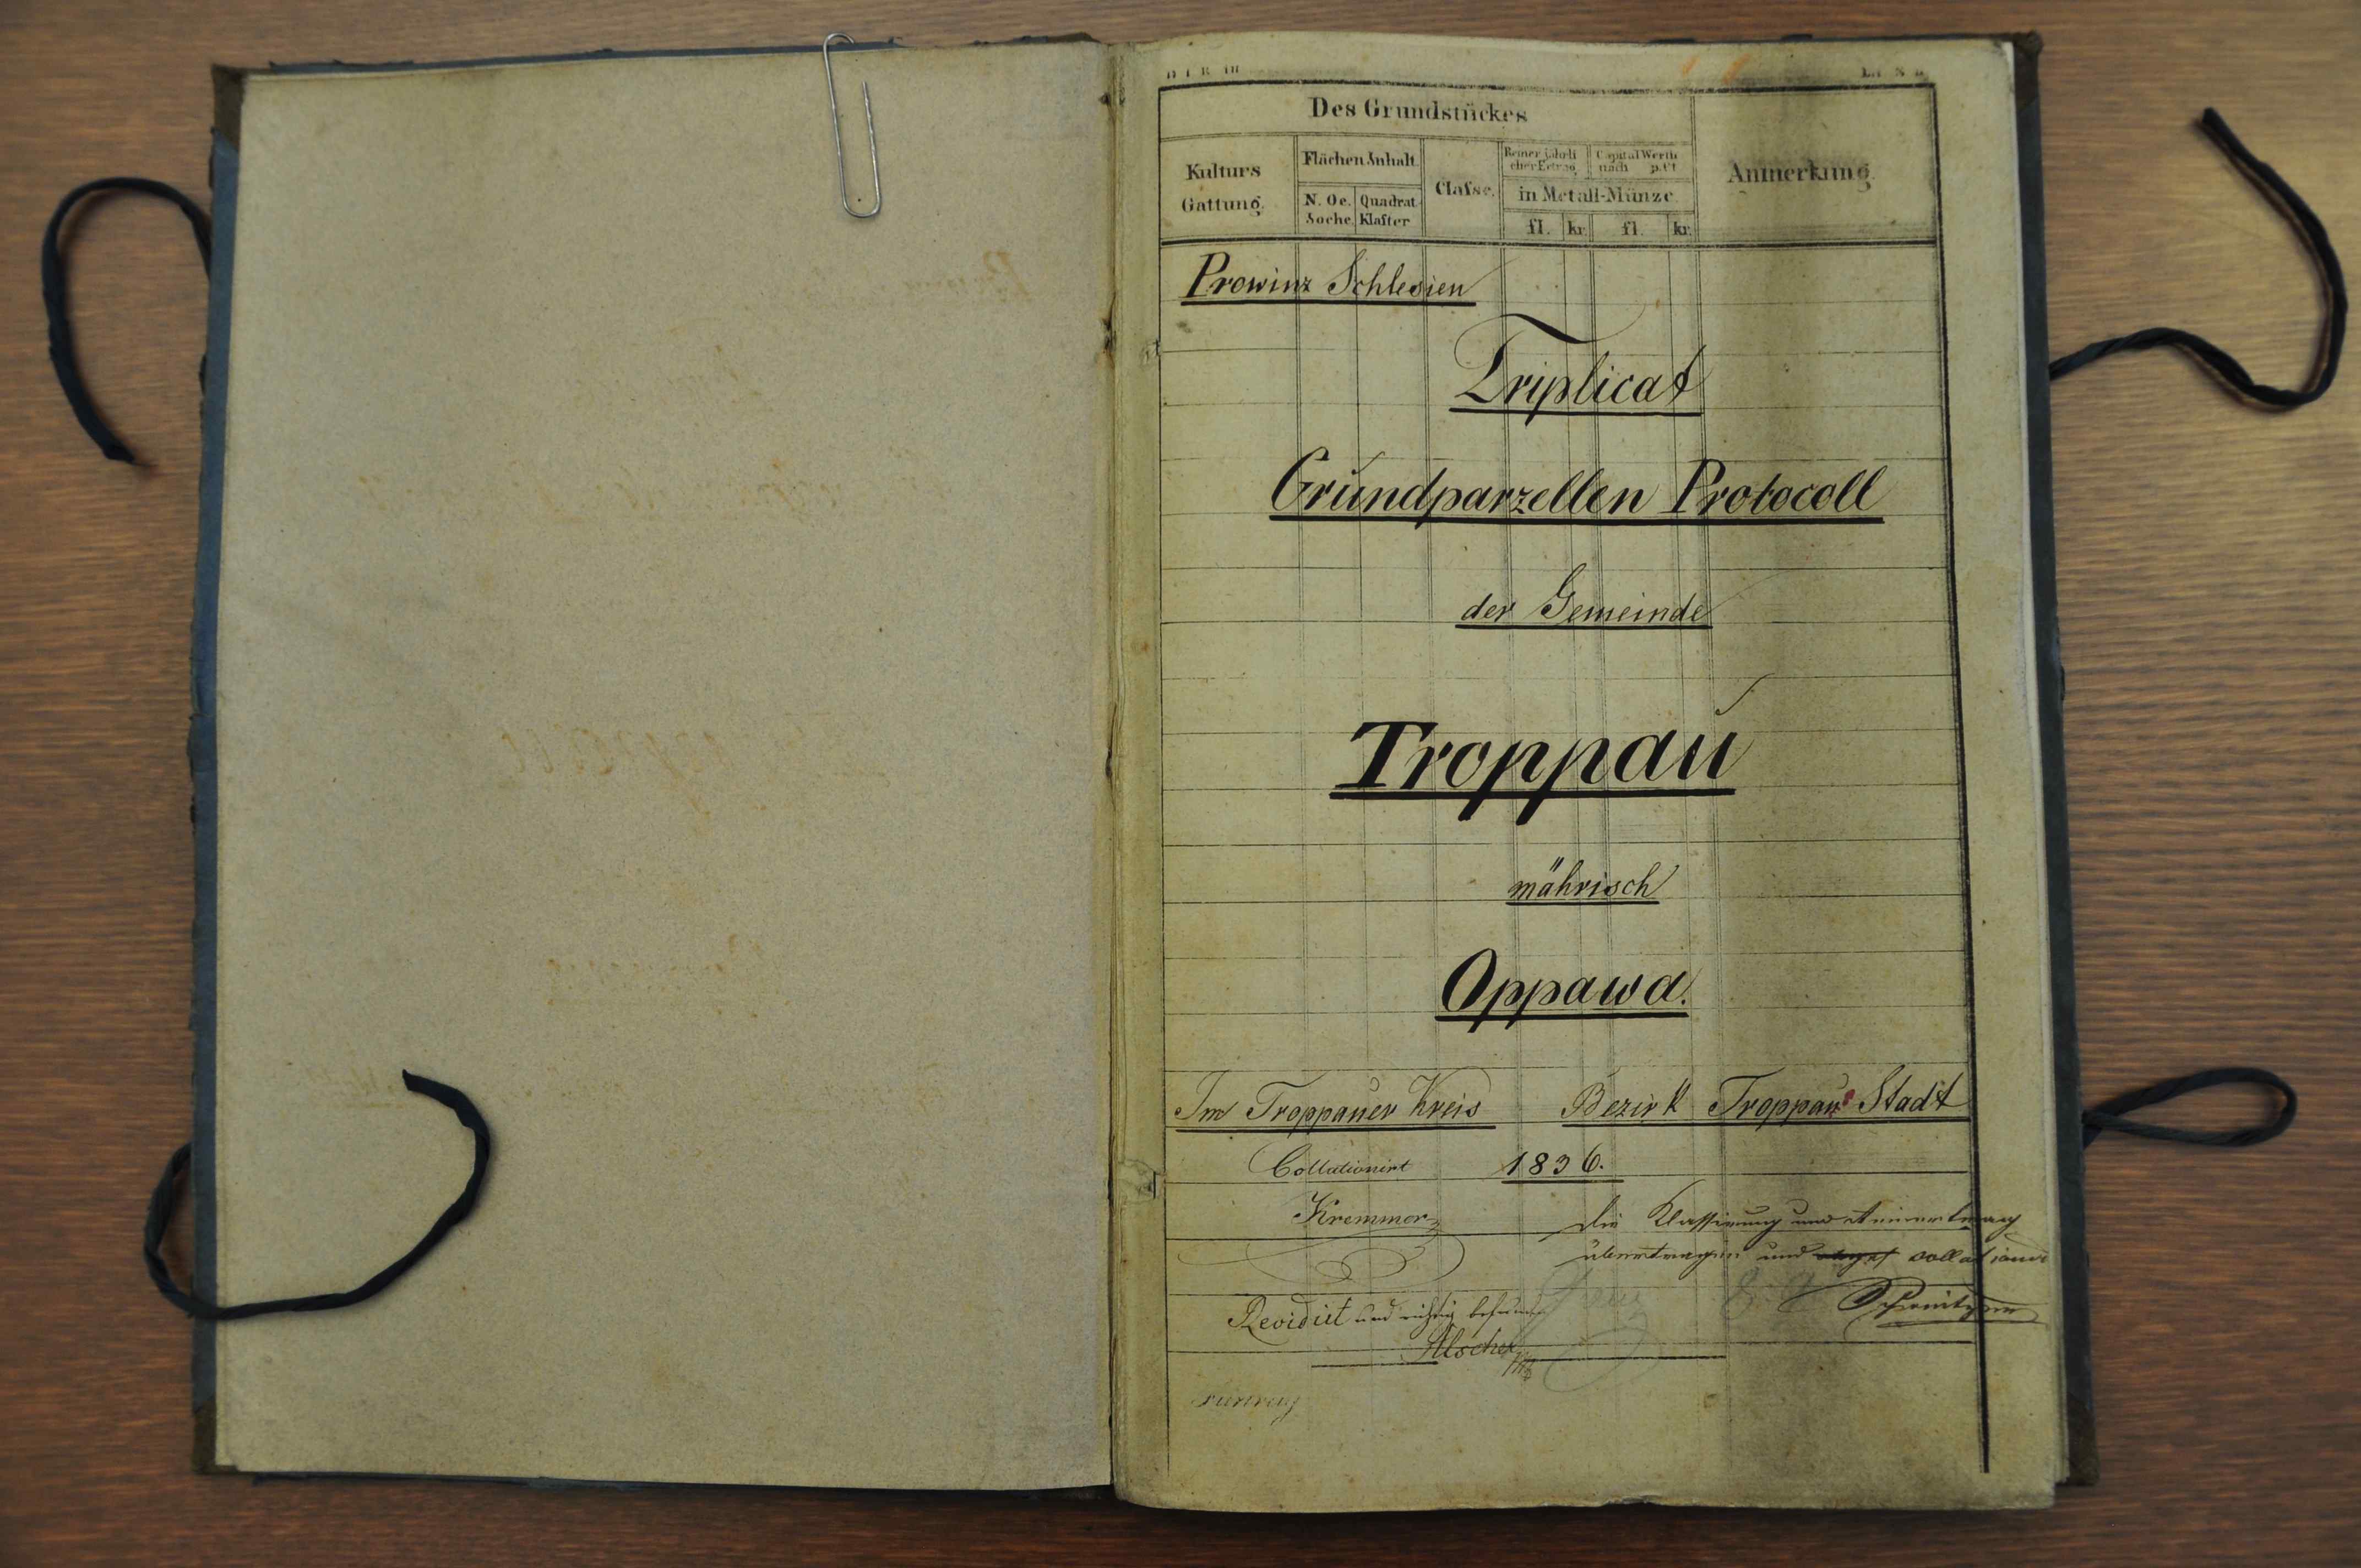 Des Grundstückes
Kulturs Gattung.
Flächen Inhalt.
N. Oe. Joche.
Quadrat Klafter
Classe.
Reiner jährlicher Ertrag
Capital Werth nach p.Ct
in Metall-Münze.
fl. kr. fl. kr.
Anmerkung.
Prowinz Schlesien
Triplicat
Grundparzellen Protocoll
der Gemeinde
Troppau
mährisch
Oppawa.
Im Troppauer Kreis Bezirk Troppau Stadt
Collationirt 1836.
Kremmer
die Klassirung und
übertragen und collationirt
Revidirt und richtig befunden
Alscher